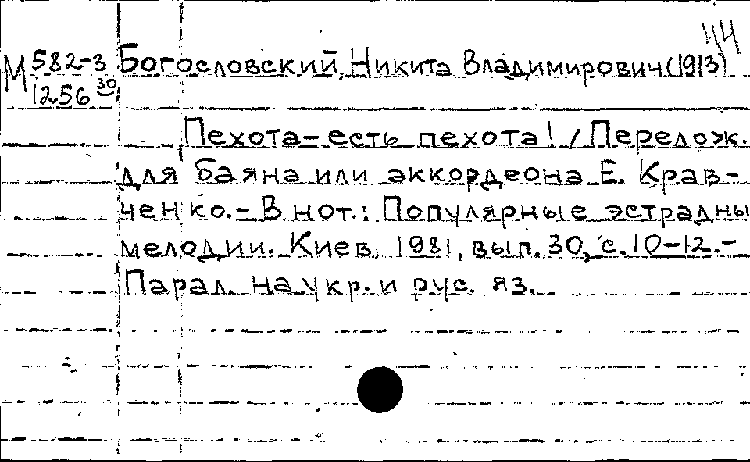 44
М 582-3 Богословский, Никита Владимирович (1913)
1256 30
Пехота-есть пехота! / Перелож.
для баяна или аккордеона Е. Крав-
ченко.- В нот.: Популярные эстрадны
мелодии. Киев, 1981, вып. 30, с. 10-12.-
Парал. на укр. и рус. яз.